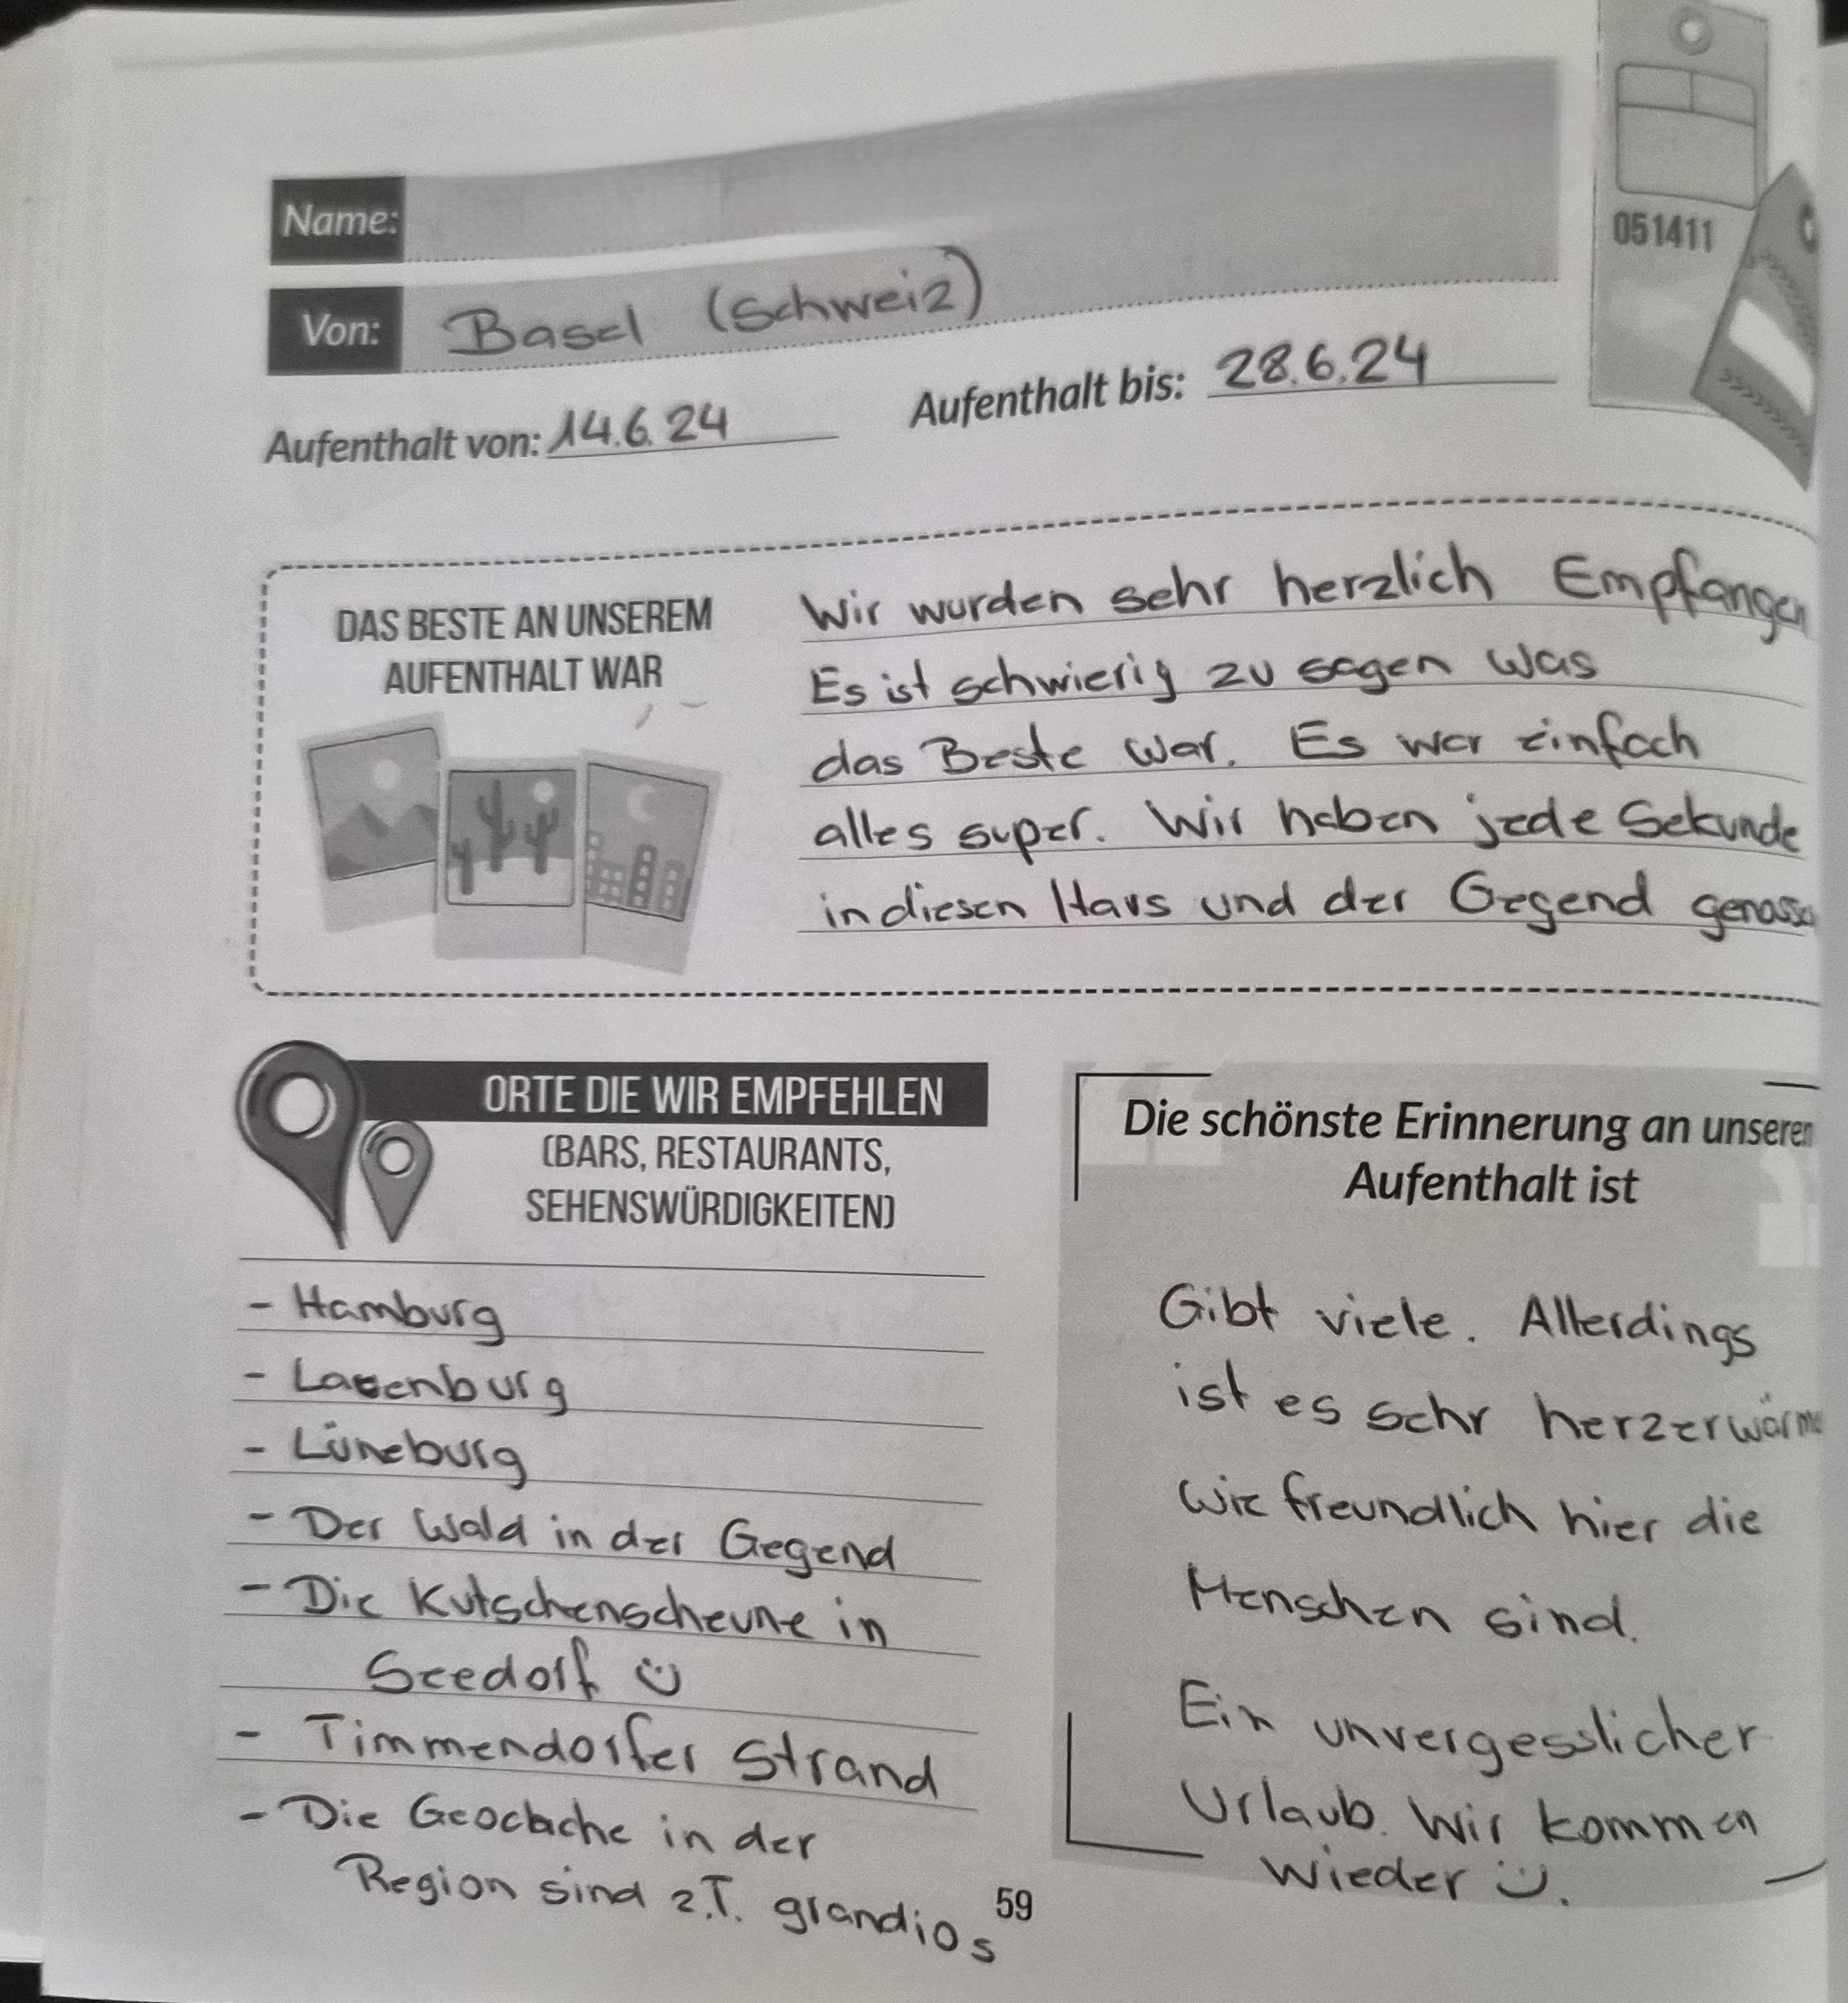 051411
Name:
Von: Basel (Schweiz)
Aufenthalt von: 14.6.24
Aufenthalt bis: 28.6.24
DAS BESTE AN UNSEREM
AUFENTHALT WAR
Wir wurden sehr herzlich Empfangen
Es ist schwierig zu sagen was
das Beste war. Es war einfach
alles super. Wir haben jede Sekunde
in diesen Haus und der Gegend
ORTE DIE WIR EMPFEHLEN
(BARS, RESTAURANTS,
SEHENSWÜRDIGKEITEN)
- Hamburg
- Lüneburg
- Der Wald in der Gegend
- Die Kutschenscheune in
Seedorf ☺
- Timmendorfer Strand
- Die Geocache in der
Region sind z.T. grandios
Die schönste Erinnerung an unseren
Aufenthalt ist
Gibt viele. Allerdings
ist es sehr
wie freundlich hier die
Menschen sind.
Ein unvergesslicher
Urlaub. Wir kommen
wieder ☺.
59